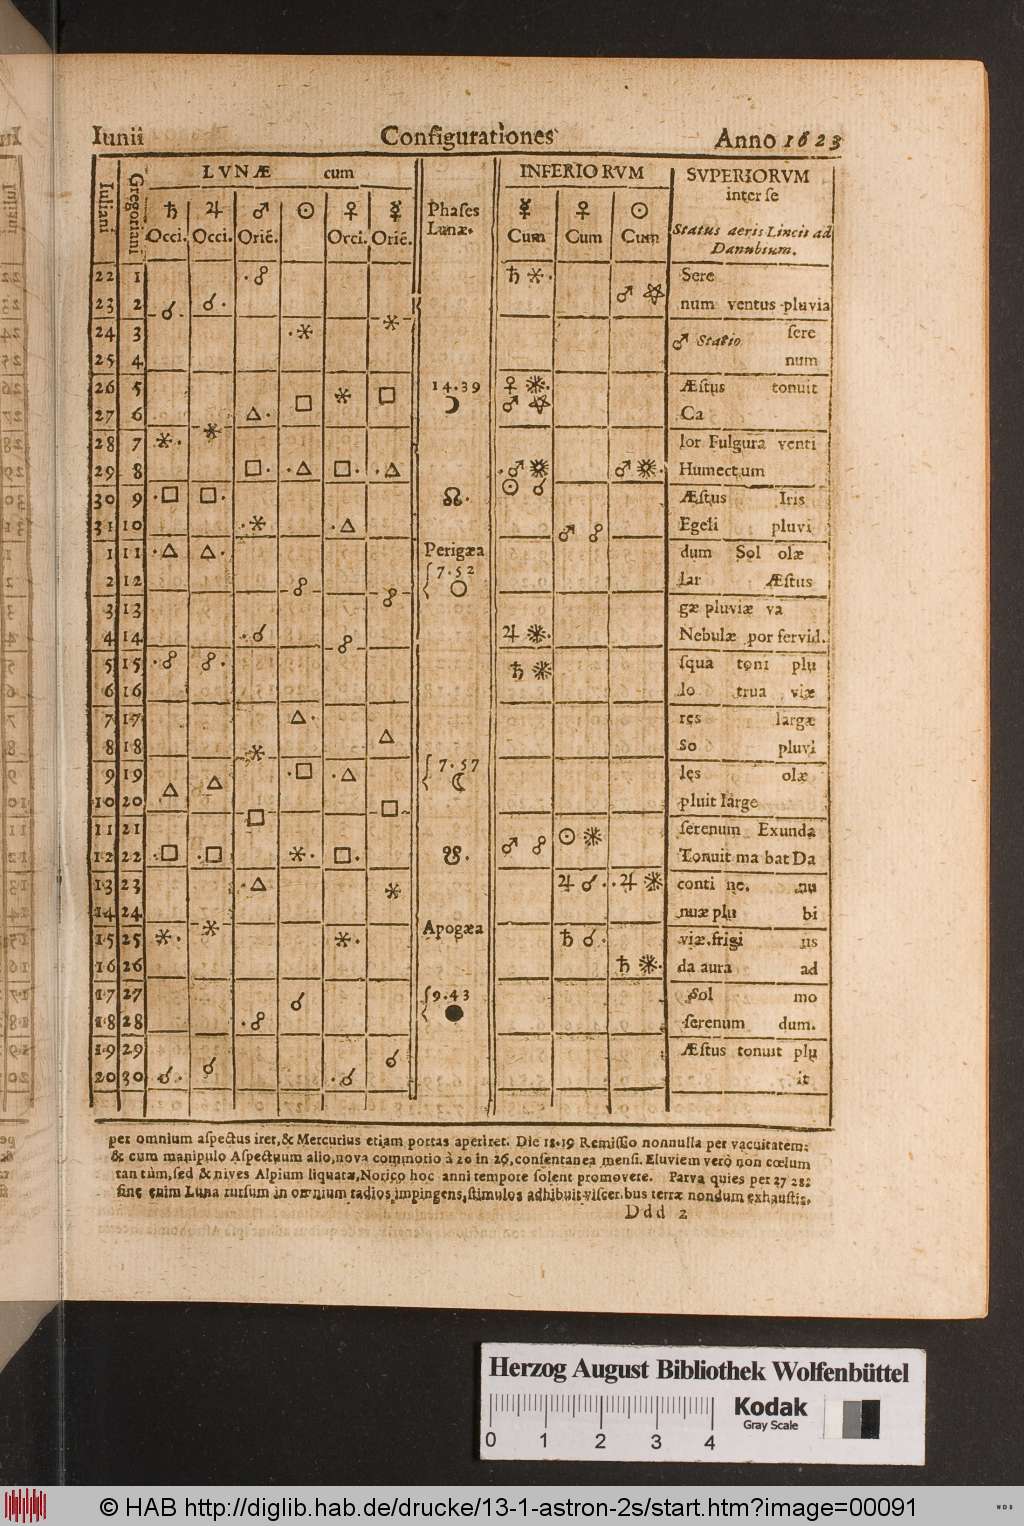 Iunii Configurationes Anno 1623
LVNÆ cum INFERIORVM SVPERIORVM
inter se
Iuliani Gregoriani ♄ ♃ ♂ ☉ ♀ ☿ Phases ☿ ♀ ☉
Occi. Occi. Orie͂. Occi. Orie͂. Lunæ. Cum Cum Cum Status aeris Lincis ad
Danubium.
22 1 · ☍ ♄ ⚹ · Sere
23 2 ☌ ☌ · ♂ num ventus pluvia
24 3 · ⚹ ⚹ ♂ Statio sere
25 4 num
26 5 ⚹ □ 14.39 ♀ Æstus tonuit
27 6 △ · □ ☽ ♂ Ca
28 7 ⚹ · ⚹ lor Fulgura venti
29 8 □ · · △ □ · · △ · ♂ ♂ Humectum
30 9 · □ □ · ☊ · ☉ ☌ Æstus Iris
31 10 · ⚹ · △ ♂ ☍ Egeli pluvi
1 11 · △ △ · Perigæa dum Sol olæ
2 12 ☍ ☍ 7.52 ○ lar Æstus
3 13 gæ pluviæ va
4 14 · ☌ ☍ ♃ Nebulæ por fervid.
5 15 · ☍ ☍ · ♄ squa toni plu
6 16 lo trua viæ
7 17 △ · res largæ
8 18 ⚹ △ So pluvi
9 19 △ △ · □ · △ 7.57 ☾ les olæ
10 20 □ pluit large
11 21 □ ☉ serenum Exunda
12 22 · □ · □ ⚹ · □ · ☋ · ♂ ☍ Tonuit ma bat Da
13 23 · △ ⚹ ♃ ☌ · · ♃ conti ne. nu
14 24 nuæ plu bi
15 25 ⚹ · ⚹ ⚹ · Apogæa ♄ ☌ · viæ. frigi us
16 26 ♄ · da aura ad
17 27 ☌ 9.43 Sol mo
18 28 · ☍ ● serenum dum.
19 29 ☌ ☌ Æstus tonuit plu
20 30 ☌ · · ☌ it
per omnium aspectus iret, & Mercurius etiam portas aperiret. Die 18.19 Remissio nonnulla per vacuitatem:
& cum manipulo Aspectuum alio, nova commotio à 20 in 26, consentanea mensi. Eluviem verò non cœlum
tantùm, sed & nives Alpium liquatæ, Norico hoc anni tempore solent promovere. Parva quies per 27 28:
sine enim Luna rursum in omnium radios impingens, stimulos adhibuit visceribus terræ nondum exhaustis,
Ddd 2
Herzog August Bibliothek Wolfenbüttel
Kodak
Gray Scale
0 1 2 3 4
© HAB http://diglib.hab.de/drucke/13-1-astron-2s/start.htm?image=00091